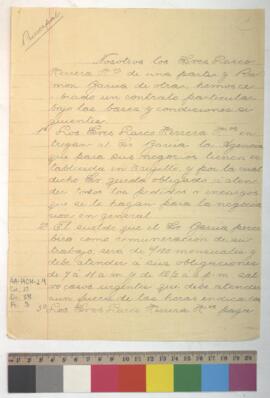 Principal
Nosotros los Sres Larco
Herrera Hnos de una parte y Ra
mon Garcia de otra, hemos ce
brado un contrato particular
bajo las bases y condiciones si
guientes:
1ª Los Sres Larco Herrera Hnos en
tregan al Sr Garcia la Agencia
que para sus negocios tienen es
tablecida en Trujillo, y por la cual
dicho Sr queda obligado a aten
der todos los pedidos o encargos
que se le hagan para la negocia
cion en general
2ª El sueldo que el Sr Garcia perci
bera como remuneracion de su
trabajo, sera de mensuales y
debe atender a sus obligaciones
de 7 a 11 a m y de a 6 p. m sal
vo casos urgentes que debe atender
aun fuera de las horas indicadas
3ª Los Sres Larco Herrera Hnos paga